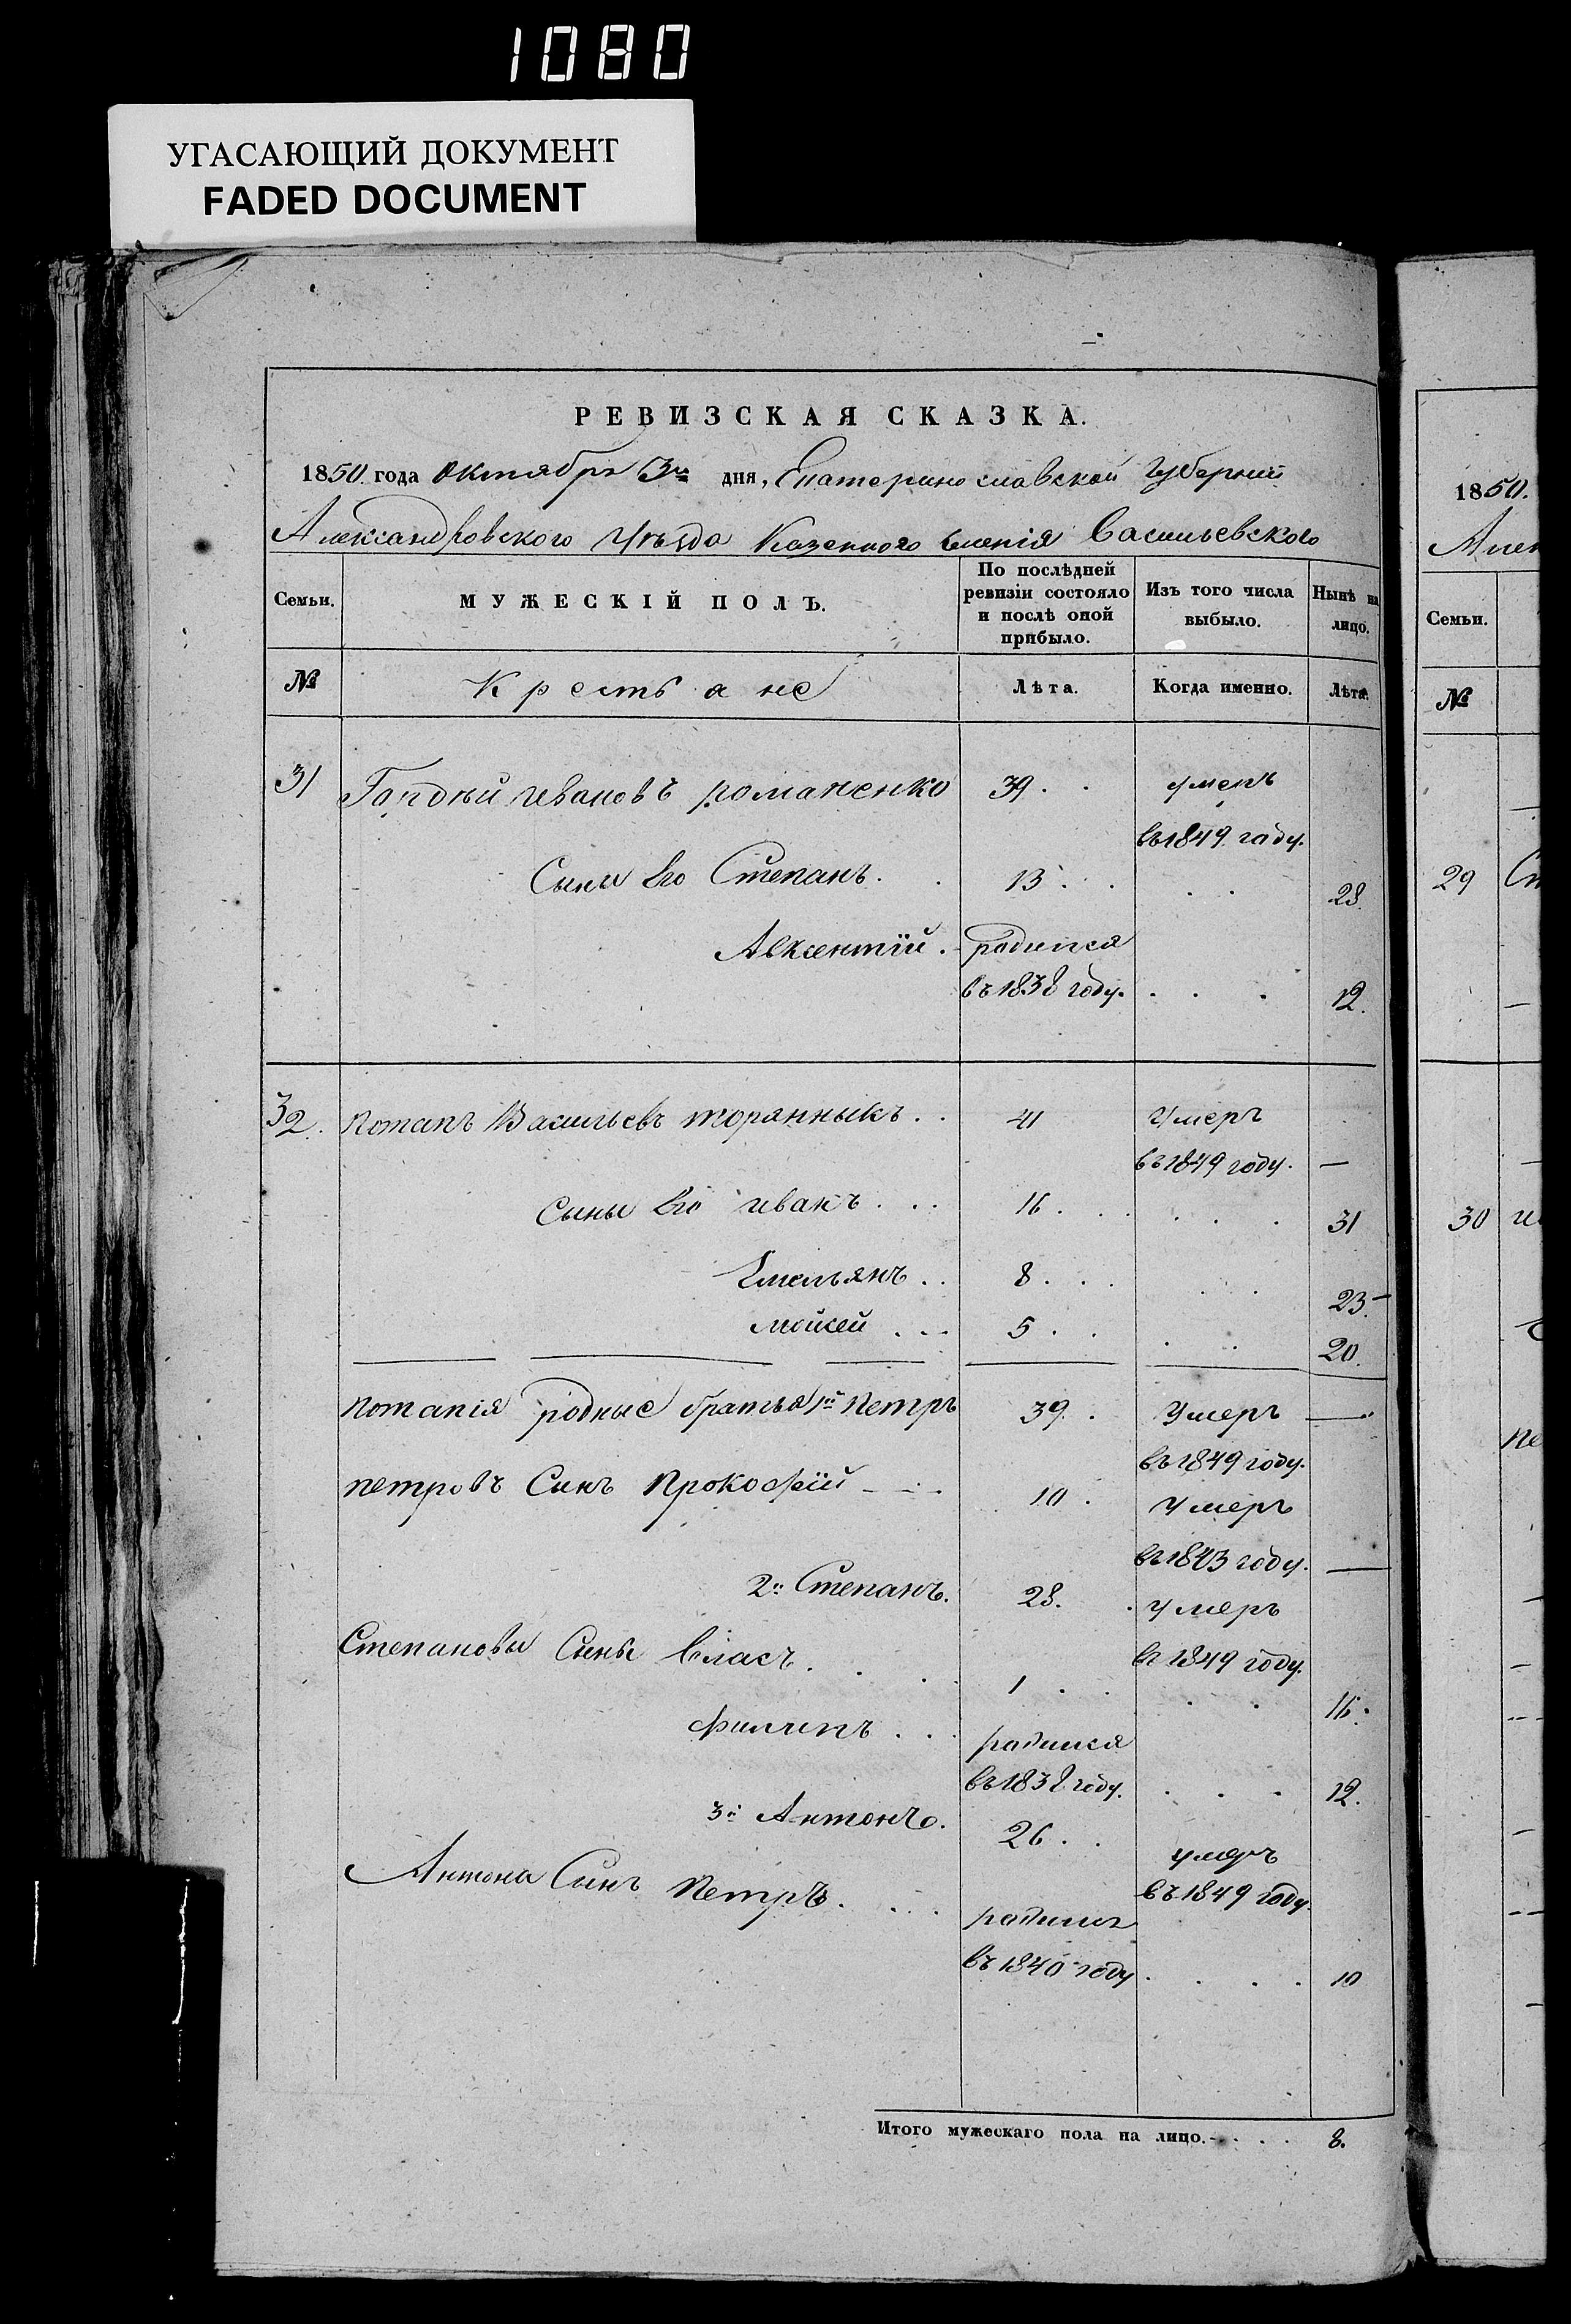 1080
УГАСАЮЩИЙ ДОКУМЕНТ
FADED DOCUMENT
РЕВИЗСКАЯ СКАЗКА.
1850 года октября 3го дня, Екатеринославской Губернии
Александровского Уѣзда Казенного Имѣнія Васильевского
Семьи. МУЖЕСКІЙ ПОЛЪ. По послѣдней ревизіи состояло и послѣ оной прибыло. Изъ того числа выбыло. Нынѣ на лицо.
№ Крестьяне Лѣта. Когда именно. Лѣта.
31 Гордѣй Ивановъ романенко 39. умеръ
въ 1849 году.
Сыны Его Степанъ. 13. 28.
Авксентій. родился
въ 1838 году. 12.
32. Потапъ Васильевъ 41 Умеръ
въ 1849 году. —
Сыны Его иванъ 16. 31
Емельянъ 8. 23.
мойсей 5. 20.
Потапія родные братья 1й Петръ 39. Умеръ —
въ 1849 году.
петровъ Сынъ Прокофій 10. Умеръ
въ 1843 году. —
2й Степанъ. 28. умеръ
въ 1849 году.
Степановы Сыны Власъ. 1. 16.
филипъ родился
въ 1838 году. 12.
3й Антонъ. 26. умеръ
въ 1849 году.
Антона Сынъ Петръ. родился
въ 1840 году 10
Итого мужескаго пола на лицо. 8.
1850.
Семьи.
№
29
30